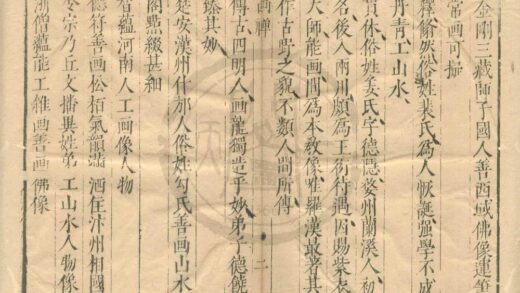 金剛三藏師子國人善西域佛像運筆
常画可掃
釋翛然俗姓裴氏為人恢誕強學不成
丹青工山水
貫休俗姓姜氏字德隱婺州蘭溪人初
名後入兩川頗為王衍待遇因賜紫衣
大師能画間為本教像唯羅漢最著其
作古野之貌不類人間所傳
画禪 二
傳古四明人画龍獨造乎妙弟子德饒
臻其妙
楚安漢州什邡人俗姓勾氏善画山水
閣點綴甚細
智蘊河南人工画像人物
德符善画松栢氣韻瀟洒住汴州相國
令宗乃丘文播異姓弟工山水人物像
浙僧蘊能工雜画善画佛像